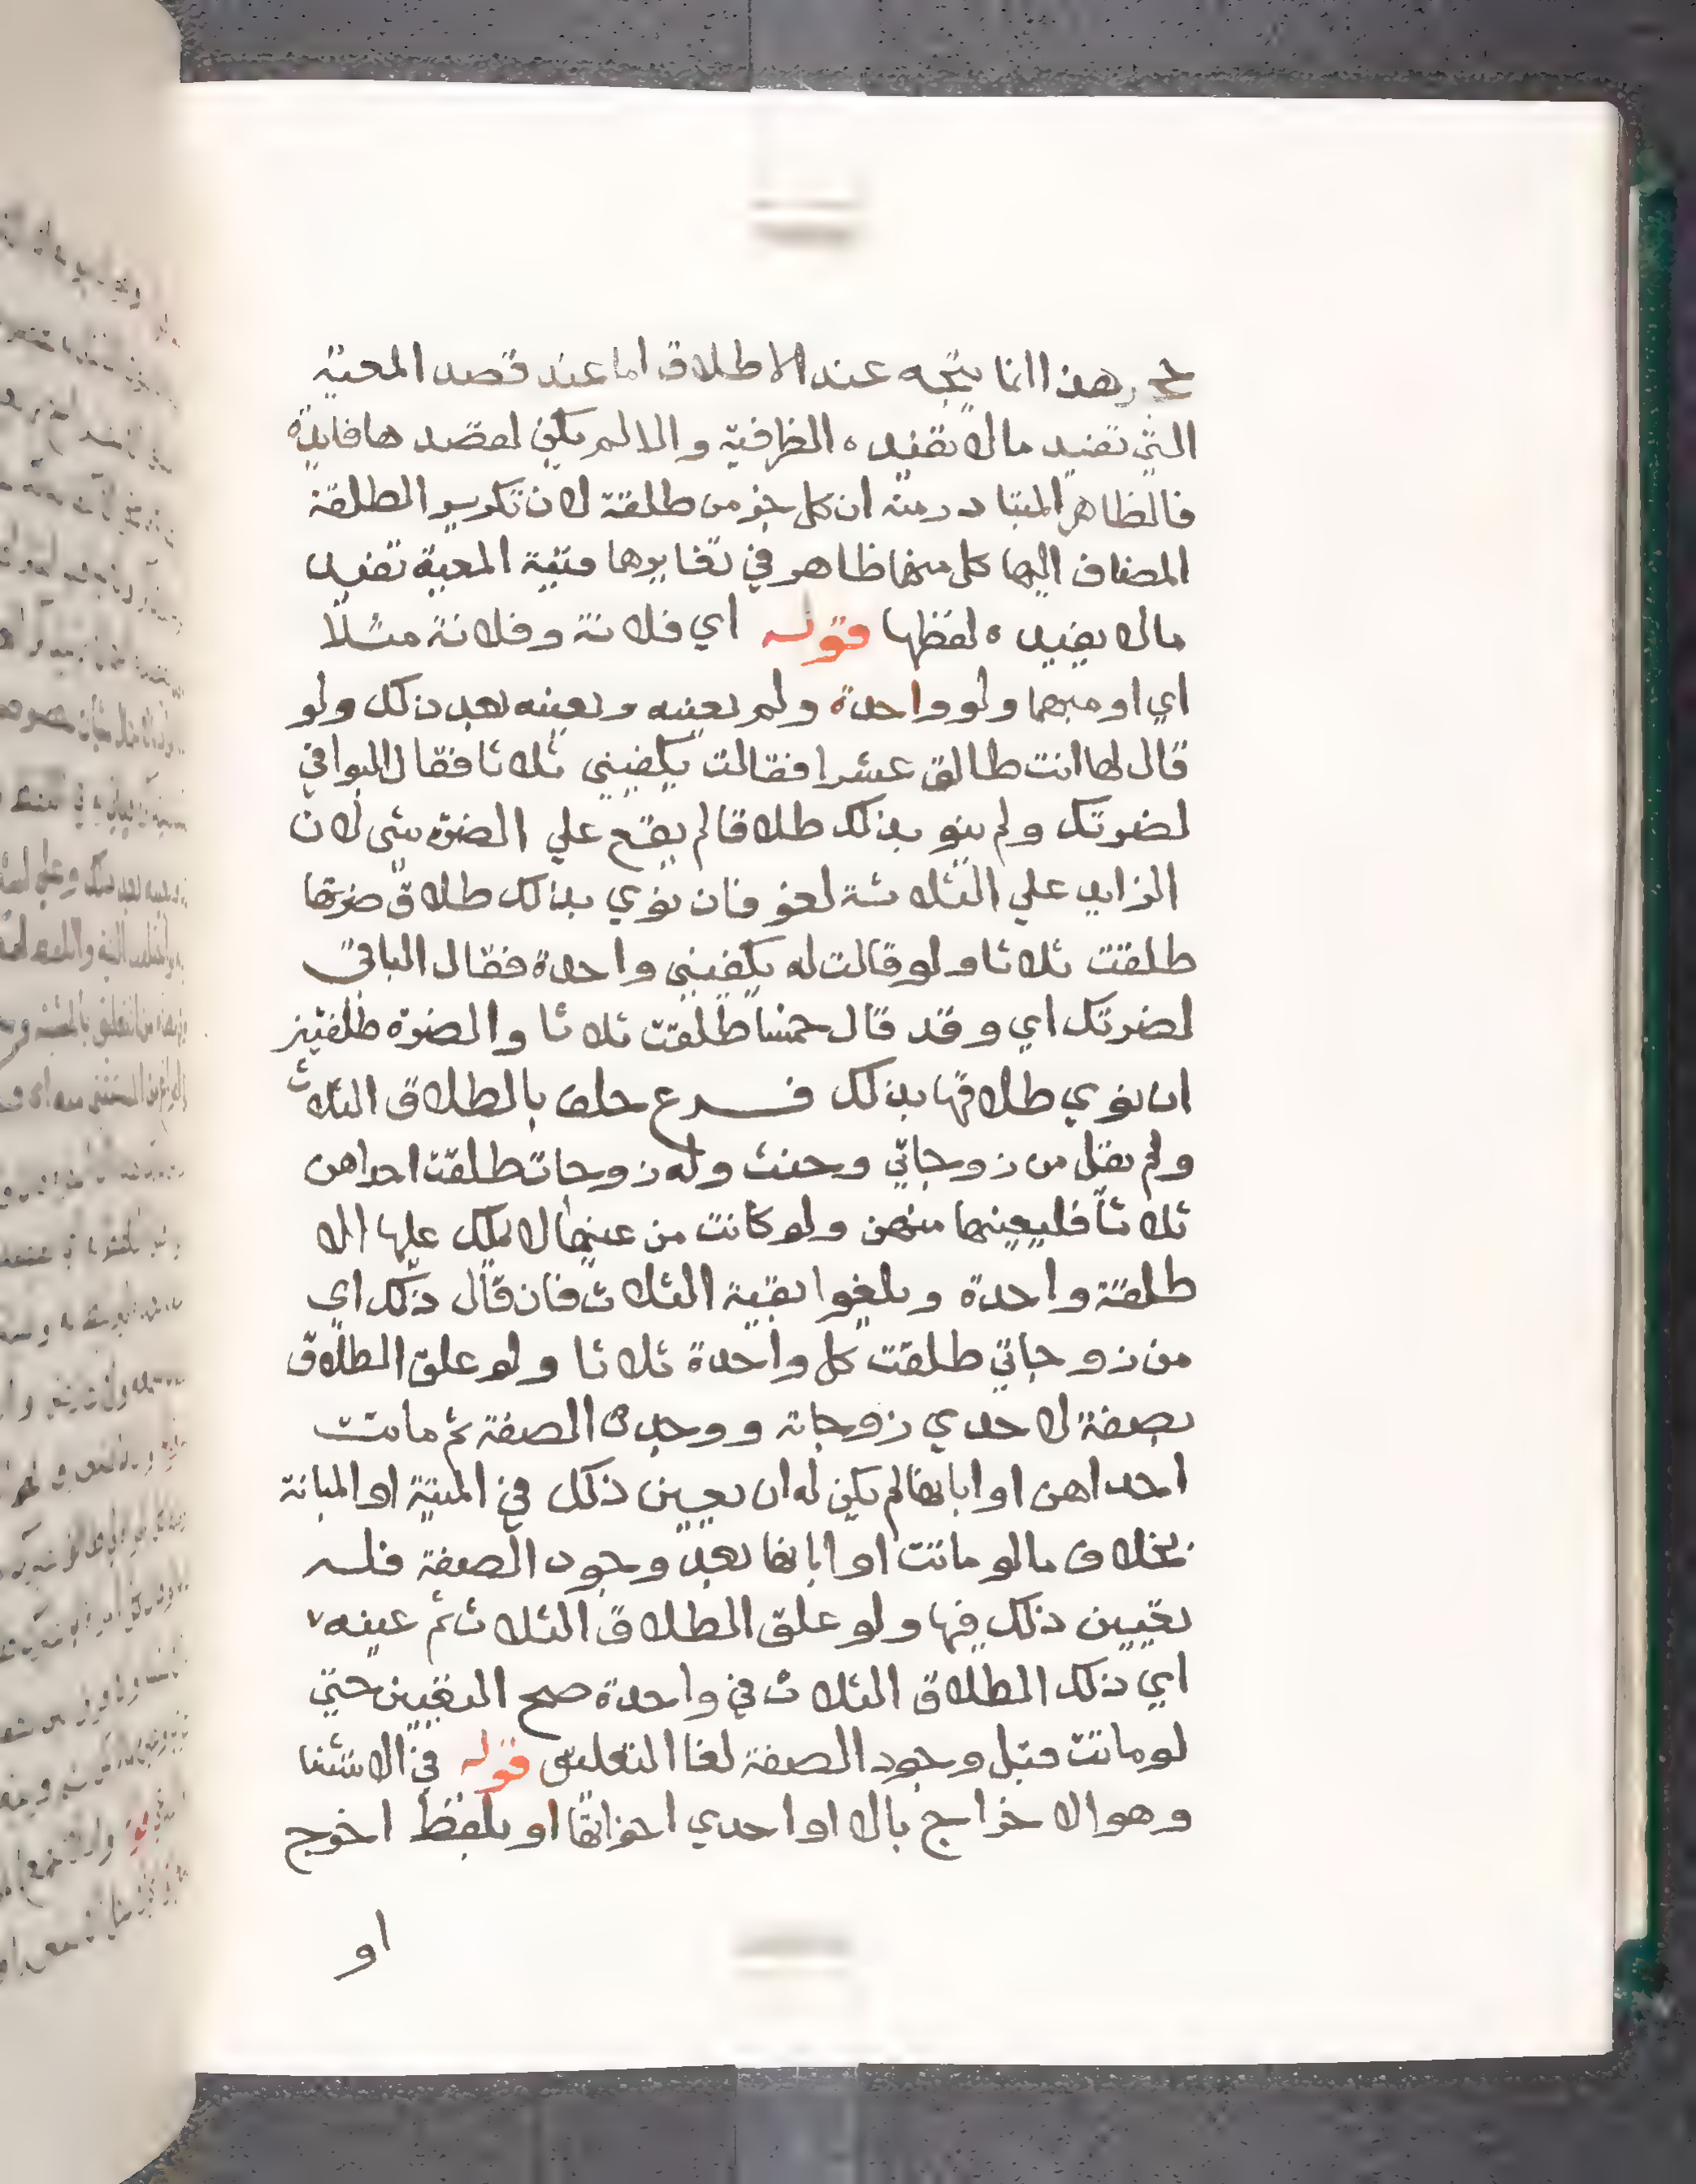 حج وهذا انما يتجه عند الاطلاق اما عند قصد المعية
التي تفيد مالا تفيده الظرفية والا لم يكن لقصدها فايدة
فالظاهر المتبادر منه ان كل جز من طلقة لان تكرير الطلقة
المضاف اليها كل منهما ظاهر في تغايرها ونية المعية تفيد
مالا يفيده لفظها قوله اي فلانة وفلانة مثلا
اي او مبهما ولو واحدة ولم يعينه ويعينه بعد ذلك ولو
قال لها انت طالق عشرا فقالت يكفيني ثلاثا فقال البواقي
لضرتك ولم ينو بذلك طلاقا لم يقع علي الضرة شي لان
الزايد علي الثلاثة لغو فان نوي بذلك طلاق ضرتها
طلقت ثلاثا ولو قالت له يكفيني واحدة فقال الباقي
لضرتك اي وقد قال خمسا طلقت ثلاثا والضرة طلقتين
ان نوي طلاقها بذلك فرع حلف بالطلاق الثلاث
ولم يقل من زوجاتي وحنث وله زوجات طلقت احداهن
ثلاثا فليعينها منهن ولو كانت من عينها لا يملك عليها الا
طلقة واحدة ويلغوا بقية الثلاث فان قال ذلك اي
من زوجاتي طلقت كل واحدة ثلاثا ولو علق الطلاق
بصفة لاحدي زوجاته ووجدت الصفة ثم ماتت
احداهن او ابانها لم يكن له ان يعين ذلك في الميتة او المبانة
بخلاف مالو ماتت او ابانها بعد وجود الصفة فله
تعيين ذلك فيها ولو علق الطلاق الثلاث ثم عينه
اي ذلك الطلاق الثلاث في واحدة صح التعيين حتي
لو ماتت قبل وجود الصفة لغا التعليق قوله في الاستثنا
وهو الاخراج بالا او احدي اخواتها او بلفظ اخرج
او